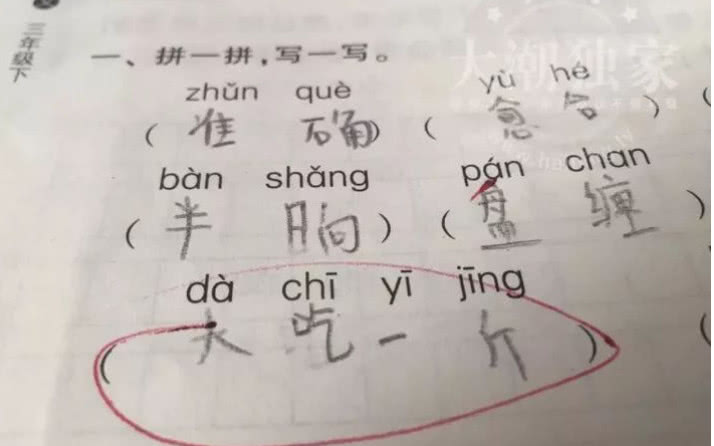 三年级下
一、拼一拼，写一写。
zhǔn què yù hé
（准 确）（愈 合）（
bàn shǎng pán chan
（半 晌）（盘 缠）
dà chī yī jīng
（大 吃 一 斤）（
大潮独家